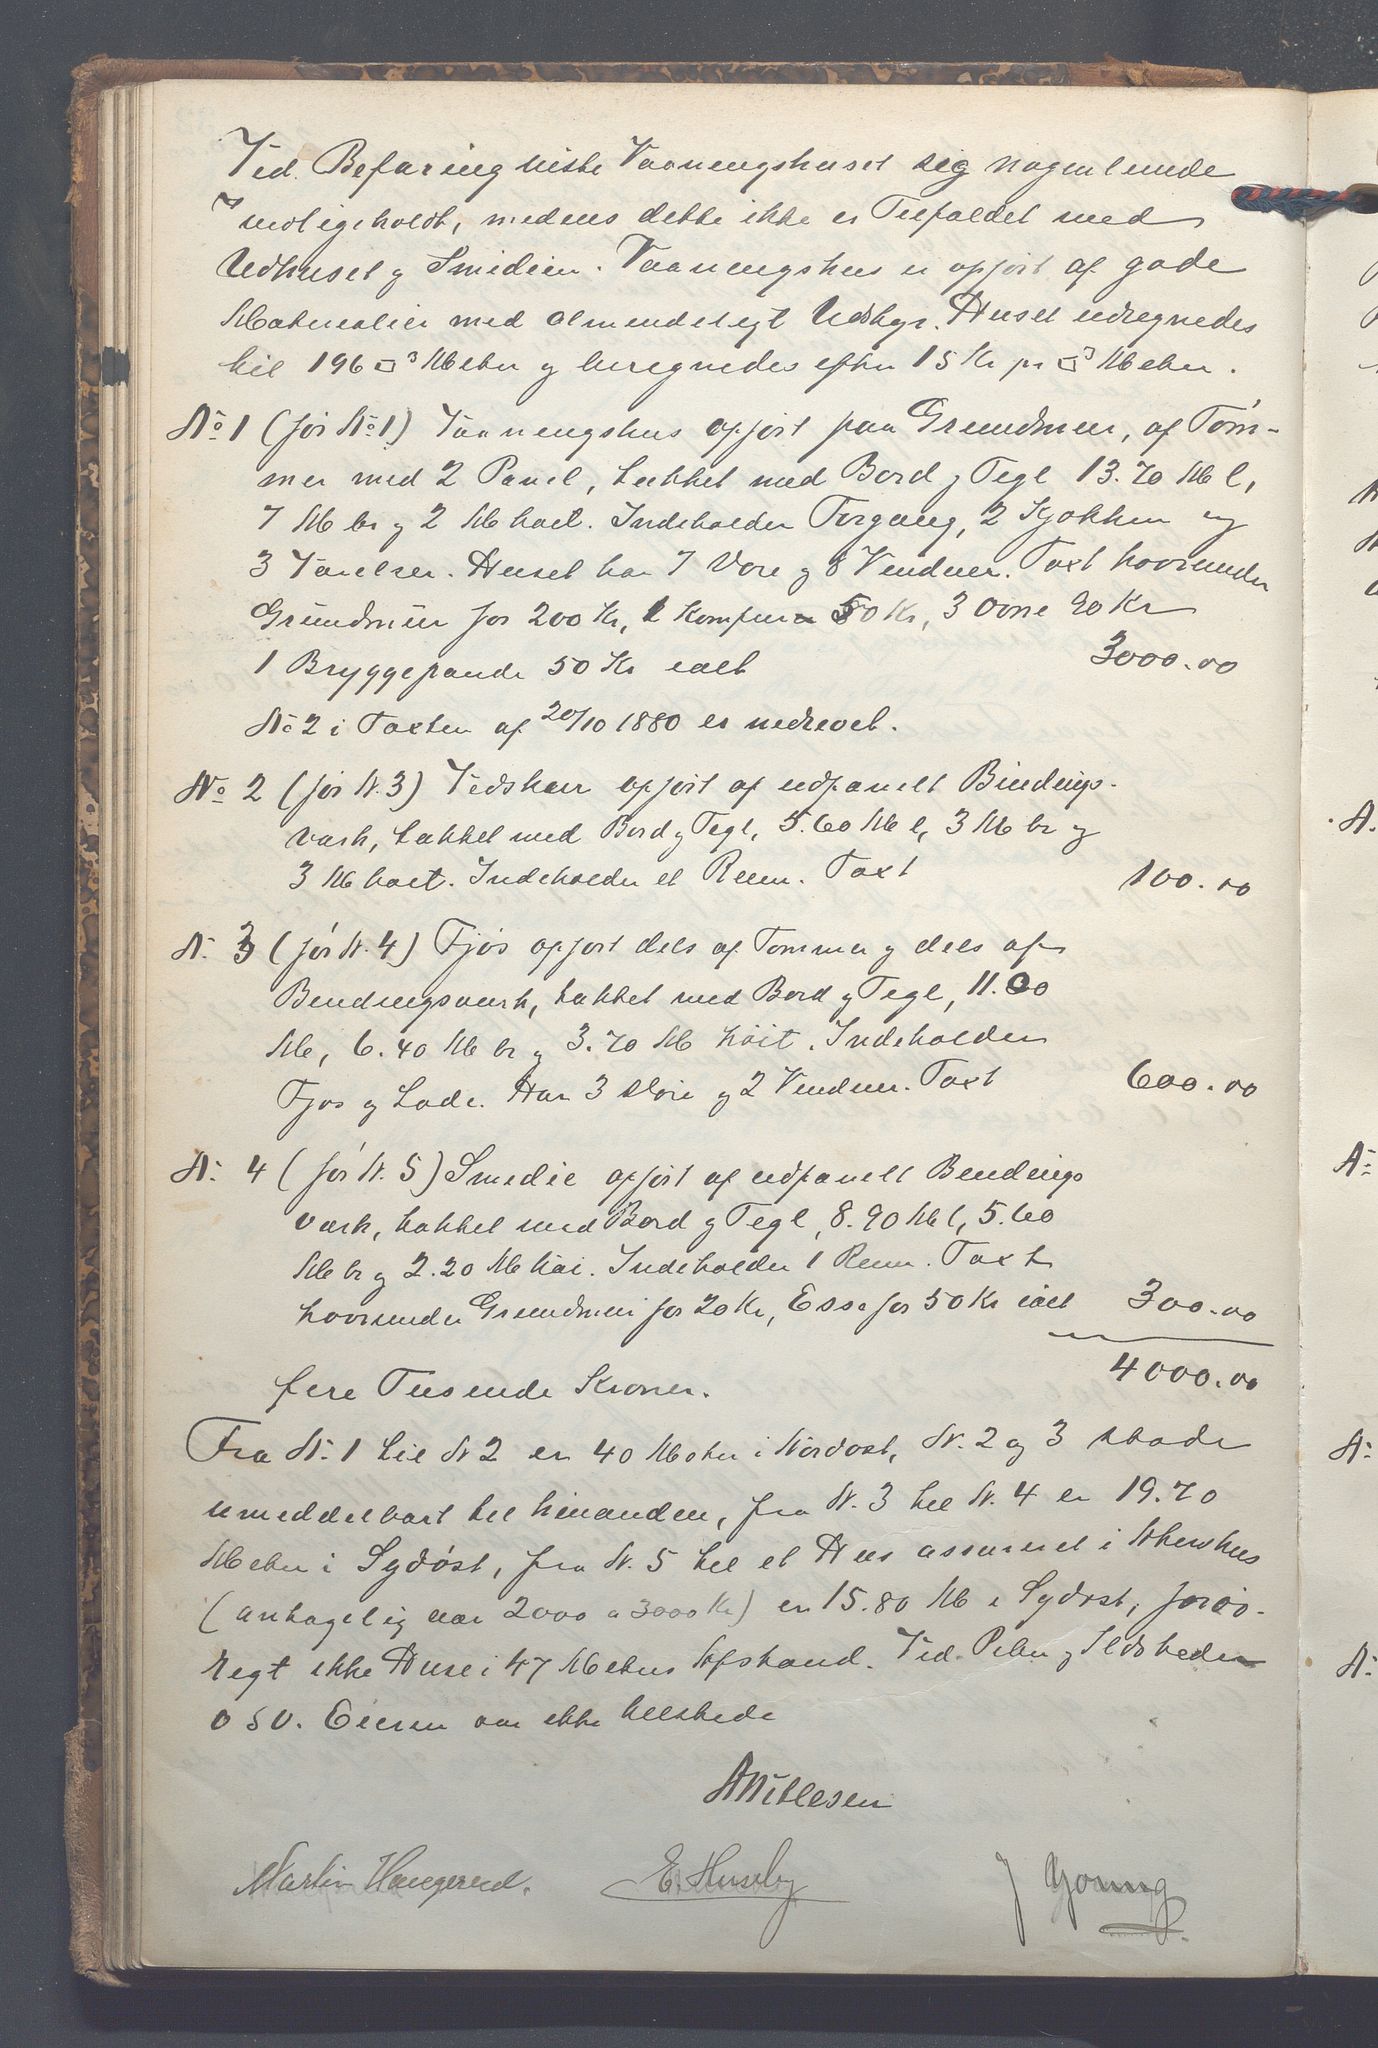 Ved Befaring viste Vaaningshuset sig nogenlunde
vedligeholdt, medens dette ikke er Tilfældet med
Udhuset og Smedien. Vaaningshus er opført af gode
Materialier med almindeligt Udstyr. Huset udregnedes
til 196 □³ Meter og beregnedes efter 15 Kr pr □³ Meter.
No 1 (før No 1) Vaaningshus opført paa Grundmur, af Tøm-
mer med 2 Panel, tækket med Bord og Tegl 13.70 M l,
7 M br og 2 M høit. Indeholder Forgang, 2 Kjøkken og
3 Værelser. Huset har 7 Døre og 8 Vinduer. Taxt hvorunder
Grundmur for 200 Kr, 1 Komfur 50 Kr, 3 Ovne 90 Kr
1 Bryggepande 50 Kr ialt 3000.00
No 2 i Taxten af 20/10 1880 er nedrevet.
No 2 (før N. 3) Vedskur opført af udpanelt Bindings-
værk, tækket med Bord og Tegl, 5.60 M l, 3 M br og
3 M høit. Indeholder et Rum. Taxt 100.00
N. 3 (før N. 4) Fjøs opført dels af Tømmer og dels af
Bindingsværk, tækket med Bord og Tegl, 11.00
Ml, 6.40 M br og 3.70 M høit. Indeholder
Fjøs og Lade. Har 3 Døre og 2 Vinduer. Taxt 600.00
N. 4 (før N. 5) Smedie opført af udpanelt Bindings
værk, tækket med Bord og Tegl, 8.90 M l, 5.60
M br og 2.20 M høi. Indeholder 1 Rum. Taxt
hvorunder Grundmur for 20 Kr, Esse for 50 Kr ialt 300.00
4000.00
fire Tusende Kroner.
Fra N. 1 til N 2 er 40 Meter i Nordost, N. 2 og 3 støde
umiddelbart til hinanden, fra N. 3 til N. 4 er 19.70
Meter i Sydøst, fra N. 5 til et Hus assureret i Akershus
(antagelig 2000 a 3000 Kr) er 15.80 M i Sydøst, forøv-
rigt ikke Huse i 47 Meters Afstand. Ved Piber og Ildsteder
o s v. Eieren var ikke tilstede
Martin Haugerud. E. Huseby